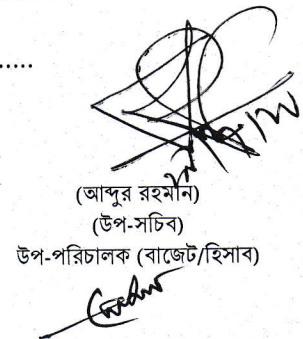 .....
(আব্দুর রহমান)
(উপ-সচিব)
উপ-পরিচালক (বাজেট/হিসাব)